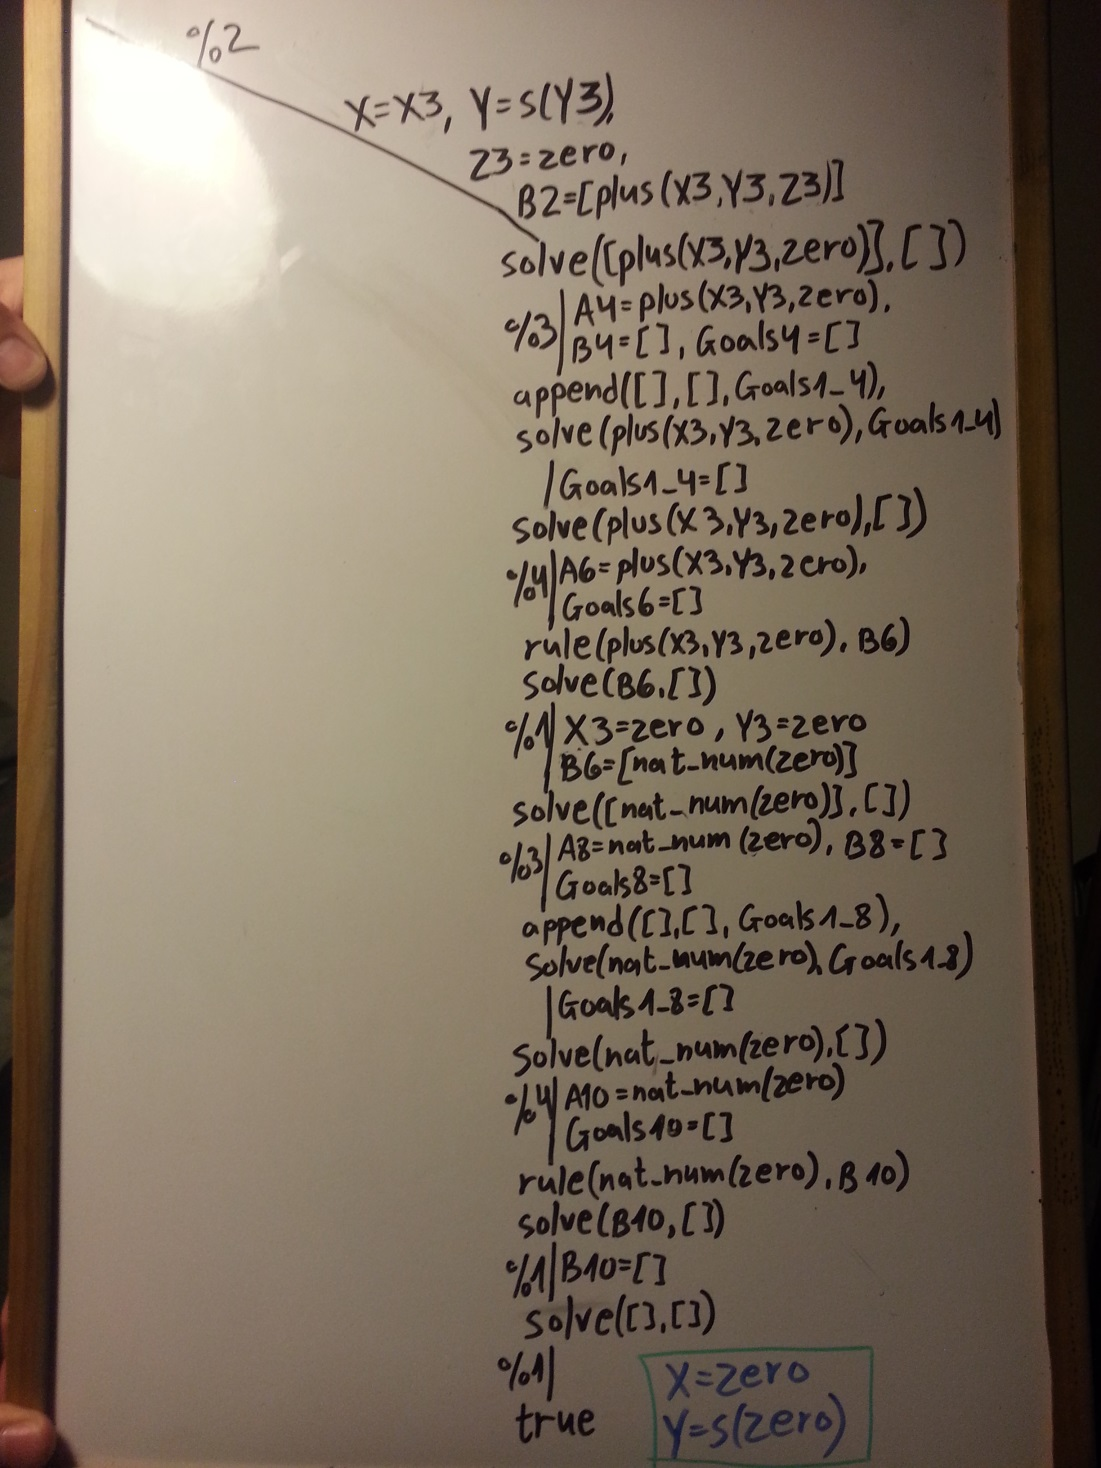 %2
X=X3, Y=s(Y3),
Z3=zero,
B2=[plus(X3,Y3,Z3)]
solve([plus(X3,Y3,zero)],[])
%3 A4=plus(X3,Y3,zero),
B4=[], Goals4=[]
append([],[],Goals1_4),
solve(plus(X3,Y3,zero),Goals1_4)
Goals1_4=[]
solve(plus(X3,Y3,zero),[])
%4 A6=plus(X3,Y3,zero),
Goals6=[]
rule(plus(X3,Y3,zero),B6)
solve(B6,[])
%1 X3=zero, Y3=zero
B6=[nat_num(zero)]
solve([nat_num(zero)],[])
%3 A8=nat_num(zero), B8=[]
Goals8=[]
append([],[],Goals1_8),
solve(nat_num(zero),Goals1_8)
Goals1_8=[]
solve(nat_num(zero),[])
%4 A10=nat_num(zero)
Goals10=[]
rule(nat_num(zero),B10)
solve(B10,[])
%1 B10=[]
solve([],[])
%1
true
X=zero
Y=s(zero)